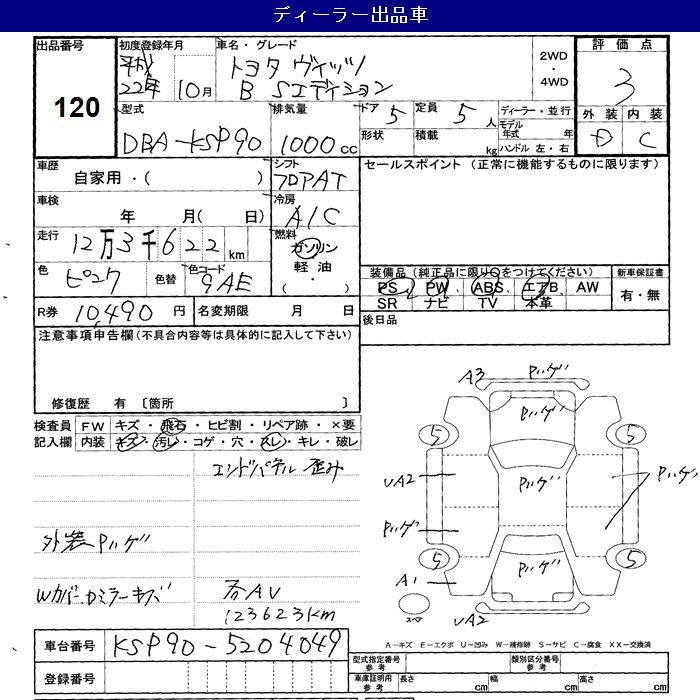 ディーラー出品車
出品番号
120
初度登録年月
平成
22年 10月
車名・グレード
トヨタ ヴィッツ
B Sエディション
2WD
・
4WD
評価点
3
外装 内装
D C
型式
DBA-KSP90
排気量
1000cc
ドア 5
定員 5人
形状
積載 kg
ディーラー・並行
モデル年式 年
ハンドル 左・右
車歴
自家用・( )
シフト
フロアAT
セールスポイント (正常に機能するものに限ります)
車検
年 月( 日)
冷房
A/C
走行
12万3千622km
燃料
ガソリン
軽油
( ・ )
色
ピンク
色替
色コード
9AE
装備品 (純正品に限り○をつけてください)
PS PW ABS エアB AW
SR ナビ TV 本革
新車保証書
有・無
R券 10,490円
名変期限 月 日
後日品
注意事項申告欄 (不具合内容等は具体的に記入して下さい)
修復歴 有 〔箇所 〕
検査員記入欄
FW キズ・飛石・ヒビ割・リペア跡・×要
内装 キズ・汚レ・コゲ・穴・スレ・キレ・破レ
エンドパネル歪み
外装Pハゲ
Wカバー、ミラーキズ
123623KM
A3
Pハゲ
5
5
UA2
Pハゲ
Pハゲ
Pハゲ
5
5
A1
Pハゲ
スペ
UA2
A－キズ E－エクボ U－凹み W－補修跡 S－サビ C－腐食 XX－交換済
車台番号 KSP90-5204049
登録番号
型式指定番号 参考
類別区分番号 参考
車庫証明用 参考
長さ cm
幅 cm
高さ cm